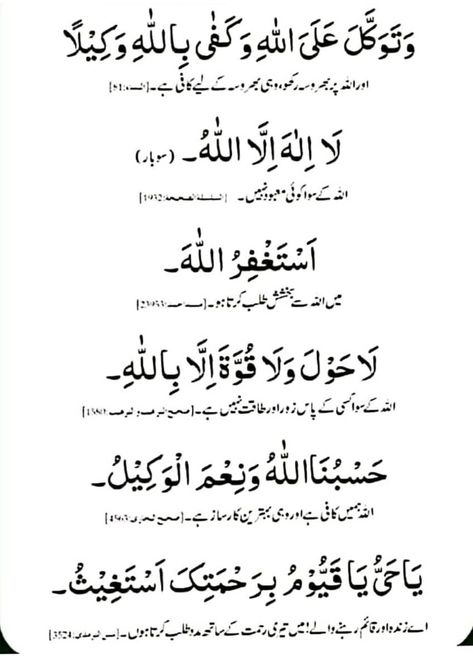 وَتَوَكَّلْ عَلَى اللهِ وَكَفٰى بِاللهِ وَكِيْلًا
اور اللہ پر بھروسہ رکھو، وہی بھروسہ کے لیے کافی ہے۔
لَا اِلٰهَ اِلَّا اللهُ۔ (سو بار)
اللہ کے سوا کوئی معبود نہیں۔
اَسْتَغْفِرُ اللهَ۔
میں اللہ سے بخشش طلب کرتا ہو۔
لَا حَوْلَ وَلَا قُوَّةَ اِلَّا بِاللهِ۔
اللہ کے سوا کسی کے پاس زور اور طاقت نہیں ہے۔
حَسْبُنَا اللهُ وَنِعْمَ الْوَكِيْلُ۔
اللہ ہمیں کافی ہے اور وہی بہترین کارساز ہے۔
يَا حَيُّ يَا قَيُّوْمُ بِرَحْمَتِكَ اَسْتَغِيْثُ۔
اے زندہ اور قائم رہنے والے! میں تیری رحمت کے ساتھ مدد طلب کرتا ہوں۔